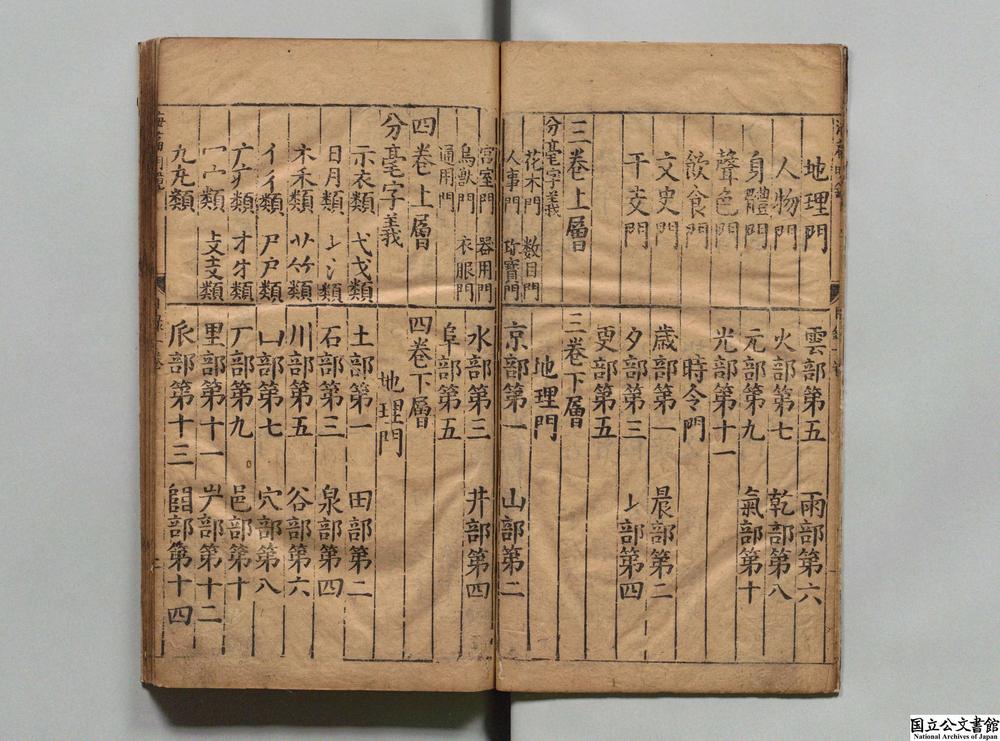 地理門
人物門
身體門
聲色門
飲食門
文史門
干支門
三卷上層
分毫字義
花木門 數目門
人事門 珍寶門
雲部第五 雨部第六
火部第七 乾部第八
元部第九 氣部第十
光部第十一
時令門
歲部第一 晨部第二
夕部第三 部第四
更部第五
三卷下層
地理門
京部第一 山部第二
宮室門 器用門
鳥獸門 衣服門
通用門
四卷上層
分毫字義
示衣類 弋戈類
日月類 冫氵類
木禾類 艹竹類
亻彳類 尸戶類
广疒類 才牛類
冖宀類 攴支類
九丸類
水部第三 井部第四
阜部第五
四卷下層
地理門
土部第一 田部第二
石部第三 泉部第四
川部第五 谷部第六
凵部第七 穴部第八
厂部第九 邑部第十
里部第十一 屵部第十二
𠂢部第十三 部第十四
国立公文書館
National Archives of Japan